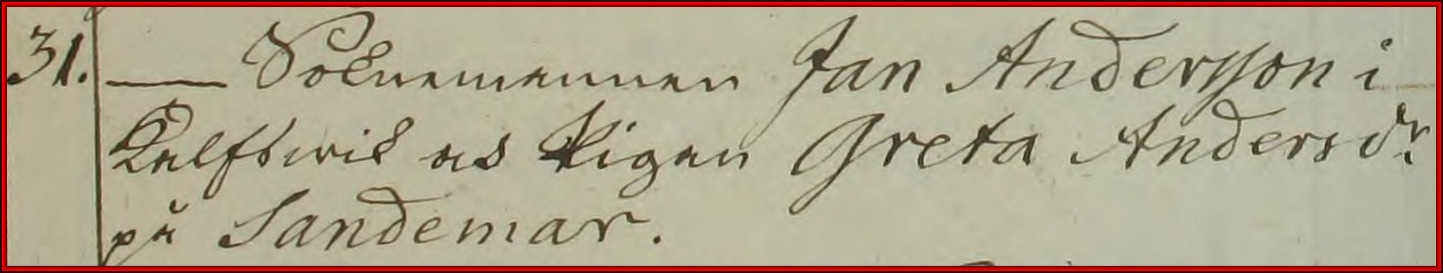 31. — Soknemannen Jan Andersson i
Kalfswik och Pigan Greta Andersdr
på Sandemar.